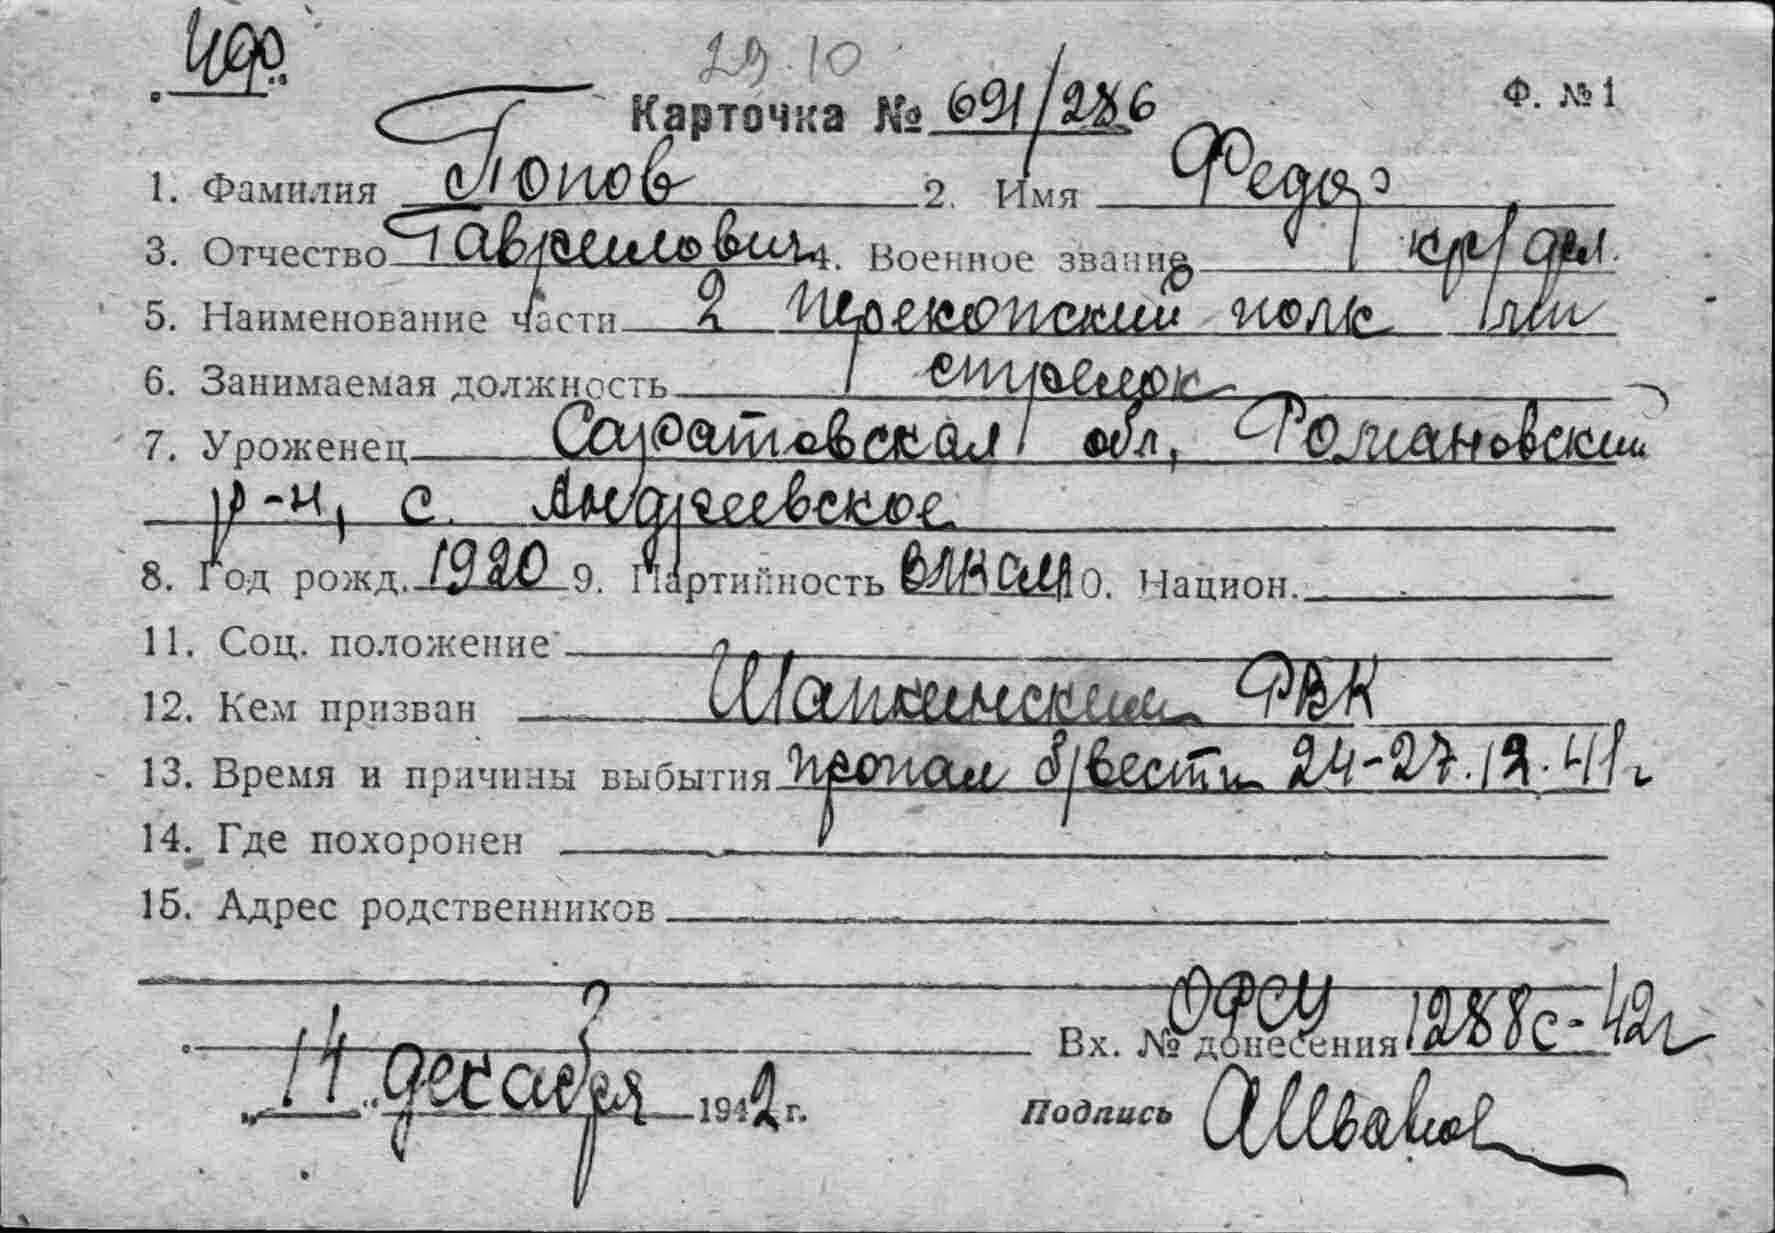 29.10
Карточка № 691/286 Ф. № 1
1. Фамилия Попов 2. Имя Федор
3. Отчество Гаврилович 4. Военное звание кр/фл.
5. Наименование части 2 Перекопский полк
6. Занимаемая должность стрелок
7. Уроженец Саратовская обл, Романовский
р-н, с. Андреевское
8. Год рожд. 1920 9. Партийность ВЛКСМ 10. Национ.
11. Соц. положение
12. Кем призван Шапкинским РВК
13. Время и причины выбытия пропал б/вести 24-27.12.41г
14. Где похоронен
15. Адрес родственников
ОФСУ
Вх. № донесения 1288с-42г
„14" декабря 1942 г. Подпись